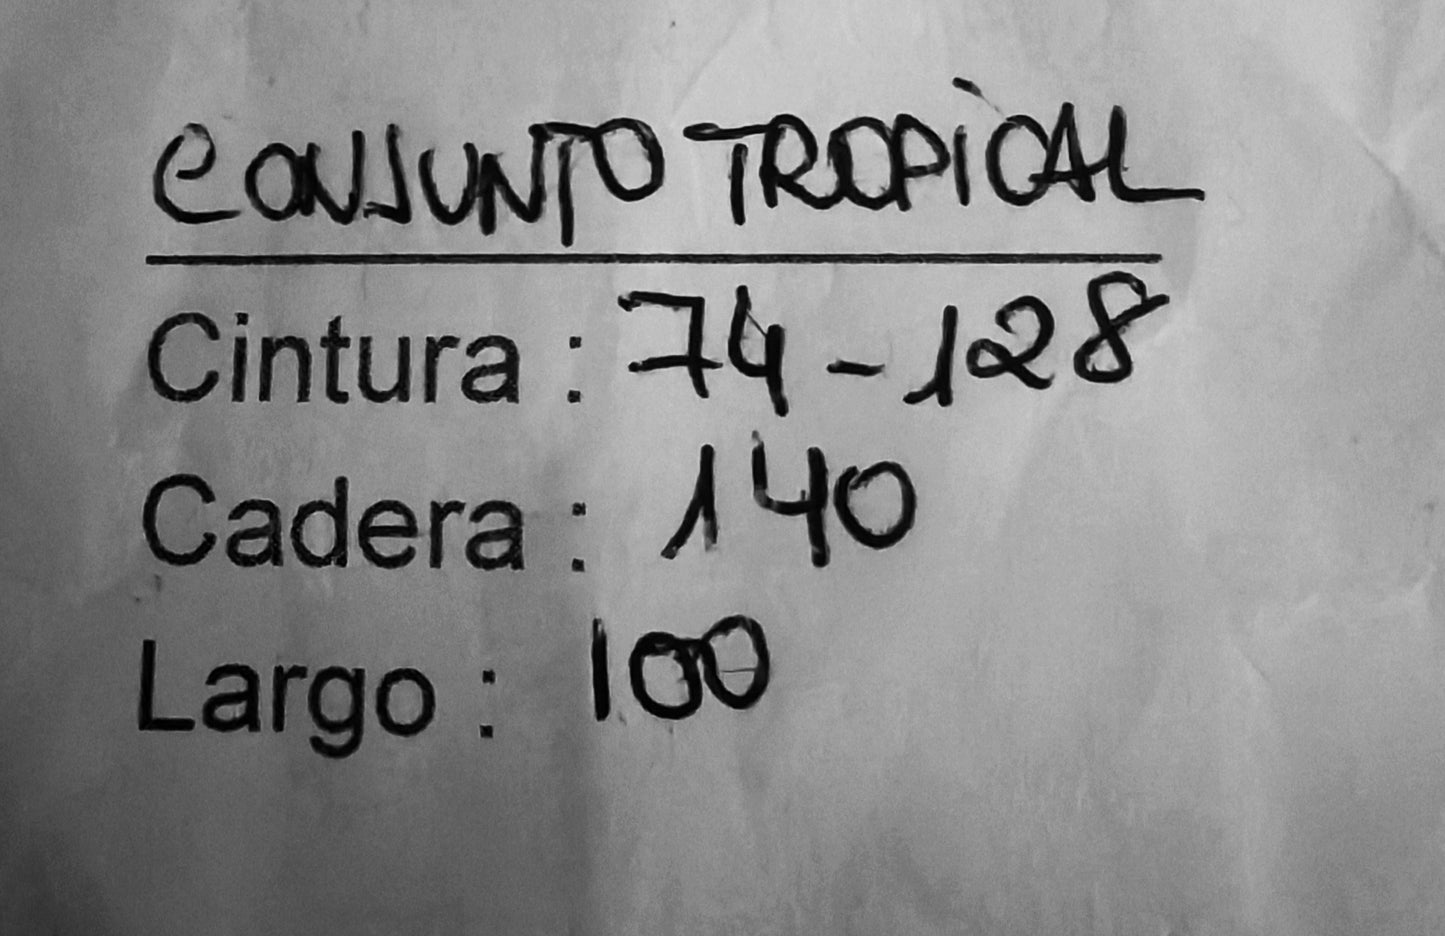 CONJUNTO TROPICAL
Cintura : 74-128
Cadera : 140
Largo : 100